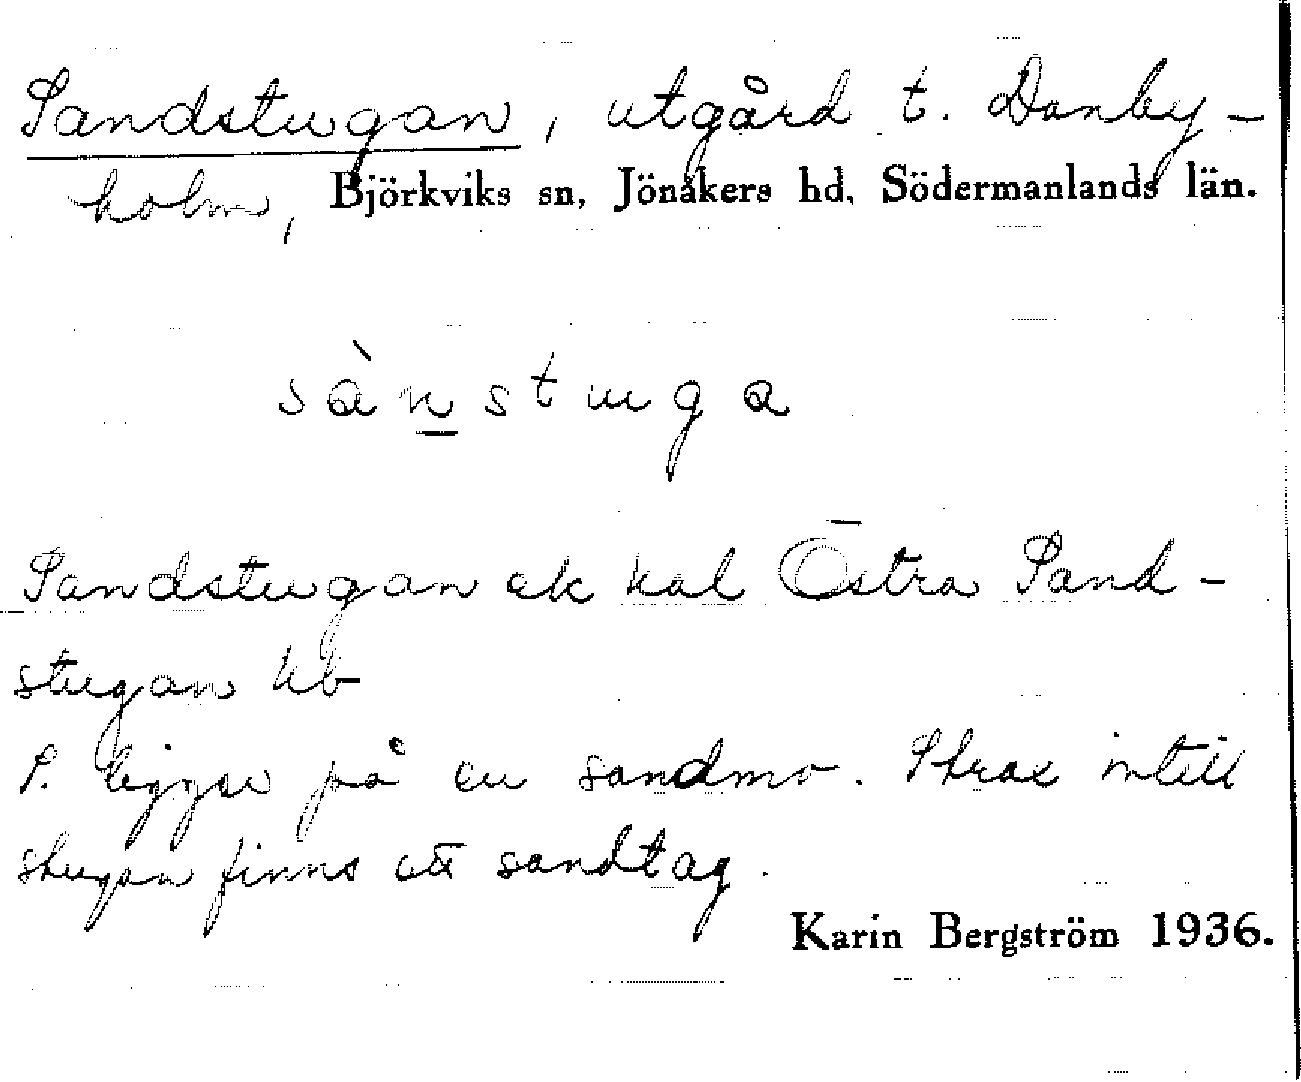 Sandstugan, utgård t. Danby-
holm, Björkviks sn, Jönåkers hd, Södermanlands län.
sànstuga
Sandstugan ek kal Östra Sand-
stugan hb
S. ligger på en sandmo. Strax intill
stugan finns ett sandtag.
Karin Bergström 1936.